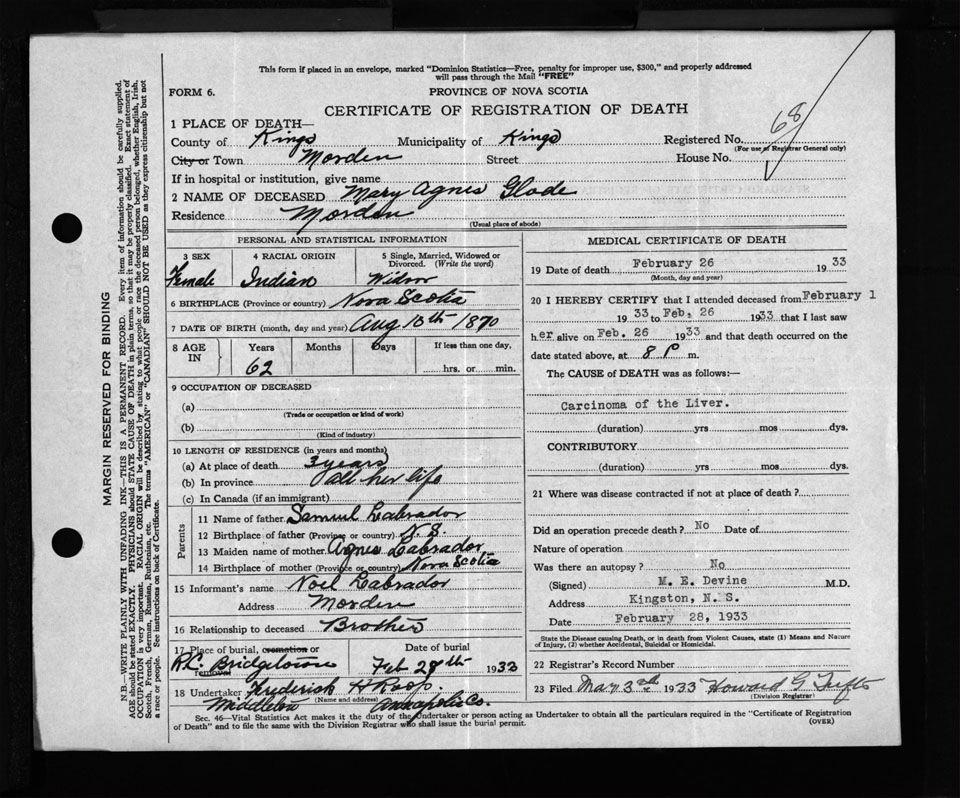 This form if placed in an envelope, marked "Dominion Statistics—Free, penalty for improper use, $300," and properly addressed
will pass through the Mail "FREE"
FORM 6.
PROVINCE OF NOVA SCOTIA
CERTIFICATE OF REGISTRATION OF DEATH
68
1 PLACE OF DEATH—
County of Kings Municipality of Kings Registered No.
(For use of Registrar General only)
City or Town Morden Street House No.
If in hospital or institution, give name
2 NAME OF DECEASED Mary Agnes Glode
Residence Morden
(Usual place of abode)
PERSONAL AND STATISTICAL INFORMATION
3 SEX 4 RACIAL ORIGIN 5 Single, Married, Widowed or
Divorced. (Write the word)
Female Indian Widow
6 BIRTHPLACE (Province or country) Nova Scotia
7 DATE OF BIRTH (month, day and year) Aug 15th 1870
8 AGE IN Years Months Days If less than one day,
62 hrs. or min.
9 OCCUPATION OF DECEASED
(a)
(Trade or occupation or kind of work)
(b)
(Kind of industry)
10 LENGTH OF RESIDENCE (in years and months)
(a) At place of death 3 years
(b) In province all her life
(c) In Canada (if an immigrant)
Parents
11 Name of father Samuel Labrador
12 Birthplace of father (Province or country) N.S.
13 Maiden name of mother Agnes Labrador
14 Birthplace of mother (Province or country) Nova Scotia
15 Informant's name Noel Labrador
Address Morden
16 Relationship to deceased Brother
17 Place of burial, cremation or removal Date of burial
R.C. Bridgetown Feb 28th 1933
18 Undertaker Frederick H Roop
(Name and address)
Middleton Annapolis Co.
MEDICAL CERTIFICATE OF DEATH
19 Date of death February 26 1933
(Month, day and year)
20 I HEREBY CERTIFY that I attended deceased from February 1
1933 to Feb. 26 1933 that I last saw
her alive on Feb. 26 1933 and that death occurred on the
date stated above, at 8 P m.
The CAUSE of DEATH was as follows:—
Carcinoma of the Liver.
(duration) yrs mos dys.
CONTRIBUTORY
(duration) yrs mos dys.
21 Where was disease contracted if not at place of death?
Did an operation precede death? No Date of
Nature of operation
Was there an autopsy? No
(Signed) M. E. Devine M.D.
Address Kingston, N. S.
Date February 28, 1933
State the Disease causing Death, or in death from Violent Causes, state (1) Means and Nature
of Injury, (2) whether Accidental, Suicidal or Homicidal.
22 Registrar's Record Number
23 Filed Mar 3 1933 Howard G Tufts
(Division Registrar)
Sec. 46—Vital Statistics Act makes it the duty of the Undertaker or person acting as Undertaker to obtain all the particulars required in the "Certificate of Registration
of Death" and to file the same with the Division Registrar who shall issue the burial permit.
(OVER)
MARGIN RESERVED FOR BINDING
N.B.—WRITE PLAINLY WITH UNFADING INK—THIS IS A PERMANENT RECORD. Every item of information should be carefully supplied.
AGE should be stated EXACTLY. PHYSICIANS should STATE CAUSE OF DEATH in plain terms, so that it may be properly classified. Exact statement of
OCCUPATION is very important. RACIAL ORIGIN will be described by stating to what people or race the deceased person belonged, whether English, Irish,
Scotch, French, German, Russian, Ruthenian, etc. The terms "AMERICAN" or "CANADIAN" SHOULD NOT BE USED as they express citizenship but not
a race or people. See instructions on back of Certificate.